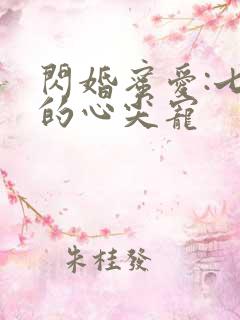 閃婚蜜愛:七
的心尖寵
朱桂發